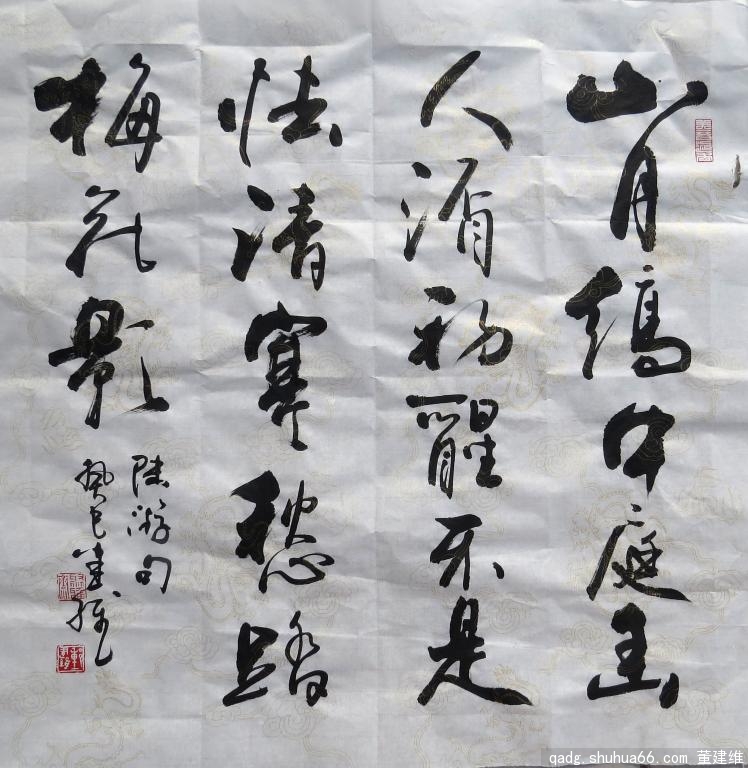 山月縞中庭幽
人酒初醒不是
怯清寒愁踏
梅花影
陸游句
癸巳建維
qadg.shuhua66.com 董建维